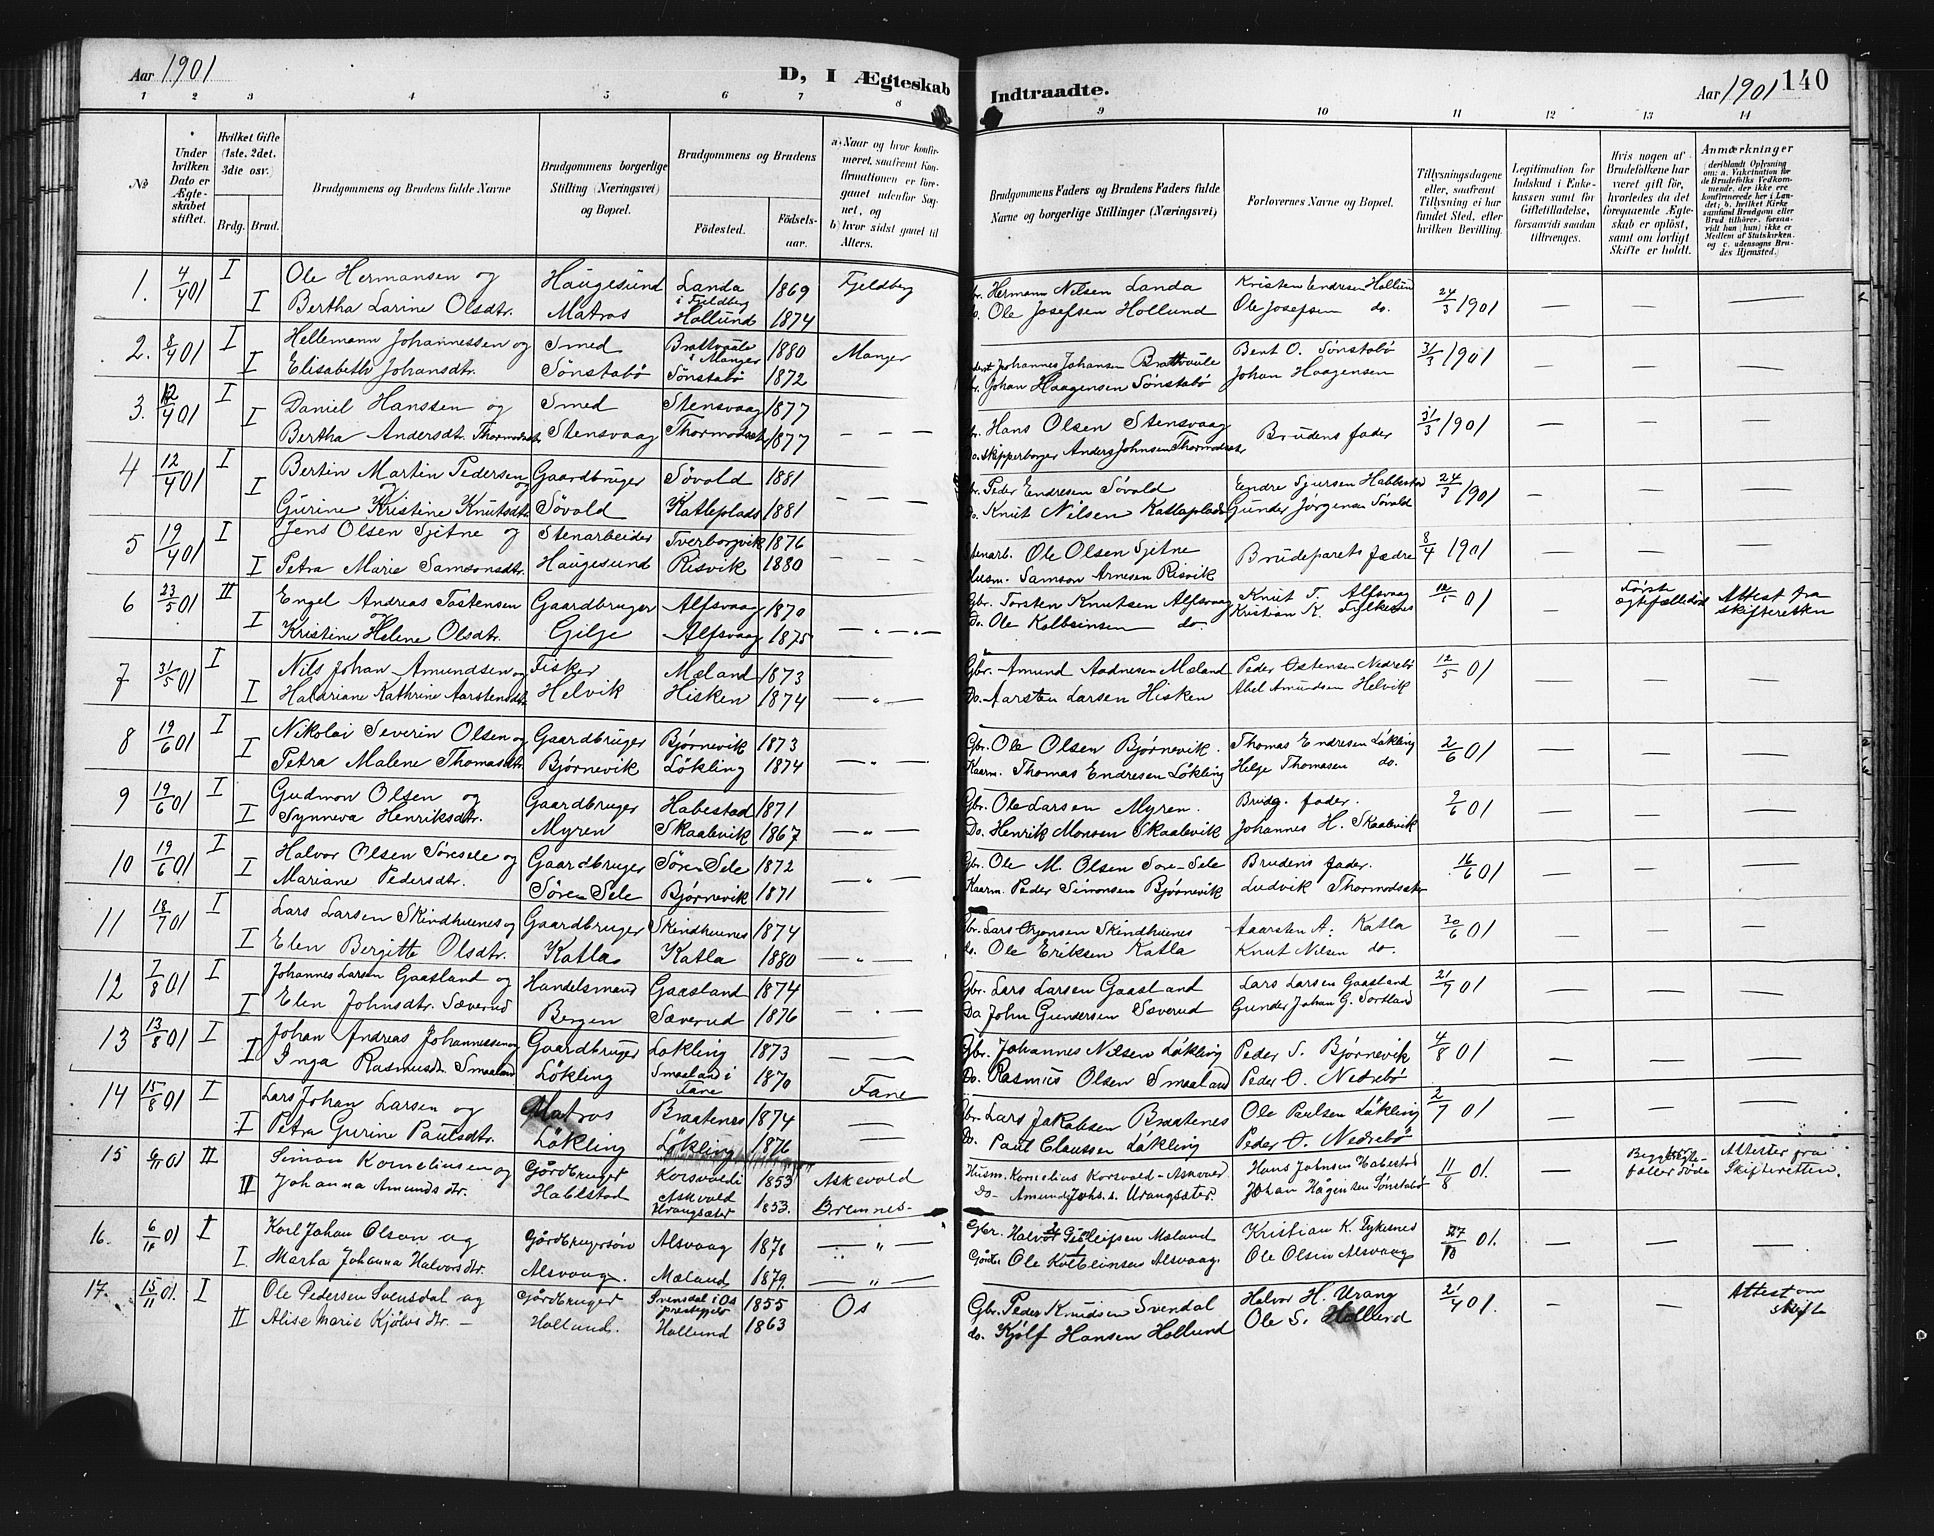 Aar 1901
D, I Ægteskab Indtraadte.
Aar 1901
140
1 2 3 4 5 6 7 8 9 10 11 12 13 14
No
Under hvilken Dato er Ægteskabet stiftet.
Hvilket Gifte (1ste, 2det, 3die osv.)
Brdg. Brud.
Brudgommens og Brudens fulde Navne
Brudgommens borgerlige Stilling (Næringsvei) og Bopæl.
Brudgommens og Brudens
Födested.
Födselsaar.
a) Naar og hvor konfirmeret, saafremt Konfirmationen er foregaaet udenfor Sognet, og
b) hvor sidst gaaet til Alters.
Brudgommens Faders og Brudens Faders fulde Navne og borgerlige Stillinger (Næringsvei)
Forlovernes Navne og Bopæl.
Tillysningsdagene eller, saafremt Tillysning ei har fundet Sted, efter hvilken Bevilling.
Legitimation for Indskud i Enkekassen samt for Giftetilladelse, forsaavidt saadan tiltrænges.
Hvis nogen af Brudefolkene har været gift för, hvorledes da det foregaaende Ægteskab er oplöst, samt om lovligt Skifte er holdt.
Anmærkninger
(deriblandt Oplysning om: a. Vaccination for de Brudefolks Vedkommende, der ikke ere konfirmerede her i Landet; b. hvilket Kirkesamfund Brudgom eller Brud tilhörer, forsaavidt han (hun) ikke er Medlem af Statskirken, og c. udensogns Brudes Hjemsted).
1. 4/4 01 I Ole Hermansen og Haugesund Landa i Fjeldberg 1869 Fjeldberg Gbr. Hermann Nilsen Landa Kristen Endresen Hollund 24/3 1901 — — —
I Bertha Larine Olsdtr. Matros Hollund 1874 Do. Ole Josefsen Hollund Ole Josefsen do.
2. 8/4 01 I Hellemann Johannessen og Smed Brattvaule i Manger 1880 Manger Johannes Johansen Brattvaule Bent O. Sønstabø 31/3 1901 — — —
I Elisabeth Johansdtr. Sönstabö Sönstabö 1872 Johan Haagensen Sönstabö Johan Haagensen
3. 12/4 01 I Daniel Hanssen og Smed Stensvaag 1877 — — — Hans Olsen Stensvaag Brudens fader 31/3 1901 — — —
I Bertha Andersdtr. Thormodsæter Stensvaag Thormodsæter 1877 Do. skipperborger Anders Johnsen Thormodsæter
4 12/4 01 I Bertin Martin Pedersen og Gaardbruger Sövold 1881 — — — Gbr. Peder Endresen Sövold Endre Sjursen Habbestad 24/3 1901 — — —
I Gurine Kristine Knutsdtr. Sövold Katlaplads 1881 do. Knut Nilsen Katlaplads Gunder Jørgensen Søvold
5 19/4 01 I Jens Olsen Sjitne og Stenarbeider Tverborgvik 1876 — — — Stenarb. Ole Olsen Sjitne Brudeparets fædre 8/4 1901 — — —
I Petra Marie Samsonsdtr. Haugesund Risvik 1880 Husm. Samson Arnesen Risvik
6 23/5 01 II Engel Andreas Tostensen Gaardbruger Alfsvaag 1870 — „ — Gbr. Torsten Knutsen Alfsvaag Knut T. Alfsvaag 12/5 01 — Første ægtefælle død Attest fra skifteretten
I Kristine Helene Olsdtr. Gilje Alfsvaag 1875 Do. Ole Kolbeinsen do. Kristian K. Fylkesnes
7 31/5 01 I Nils Johan Amundsen og Fisker Mæland 1873 — „ — Gbr. Amund Aadnesen Mæland Peder Ostensen Nedrebö 12/5 01 — — —
I Haldriane Kathrine Aarstensdtr. Helvik Hisken 1874 Do. Aarsten Larsen Hisken Abel Amundsen Helvik
8 19/6 01 I Nikolai Severin Olsen og Gaardbruger Bjørnevik 1873 — „ — Gbr. Ole Olsen Bjørnevik. Thomas Endresen Løkling 2/6 01 — — —
I Petra Malene Thomasdtr. Bjørnevik Løkling 1874 Kaarm. Thomas Endresen Løkling Helge Thomasen do.
9 19/6 01 I Gudmon Olsen og Gaardbruger Habestad 1871 — „ — Gbr. Ole Larsen Myren. Brudg. fader. 9/6 01 — — —
I Synneva Henriksdtr. Myren Skaalevik 1867 Do. Henrik Monsen Skaalevik Johannes H. Skaalevik
10 19/6 01 I Halvor Olsen Søresele og Gaardbruger Søre Sele 1872 — „ — Gbr. Ole M. Olsen Søre-Sele Brudens fader. 16/6 01 — — —
I Mariane Pedersdtr. Søre Sele Bjørnevik 1871 Kaarm. Peder Simonsen Bjørnevik Ludvik Thormodsæter
11 18/7 01 I Lars Larsen Skindhuenes og Gaardbruger Skindhuenes 1874 — „ — Gbr. Lars Ørjansen Skindhuenes Aarsten A. Katla 30/6 01 — — —
I Elen Bergitte Olsdtr. Katla Katla 1880 do. Ole Eriksen Katla Knut Nilsen do.
12 7/8 01 I Johannes Larsen Gaasland og Handelsmand Gaasland 1874 — „ — Gbr. Lars Larsen Gaasland Lars Larsen Gaasland 21/7 01 — — —
I Elen Johnsdtr. Sæverud Bergen Sæverud 1876 Do John Gundersen Sæverud Gunder Johan G. Sortland
13 13/8 01 I Johan Andreas Johannessen og Gaardbruger Løkling 1873 — — Gbr. Johannes Nilsen Løkling Peder S. Bjørnevik 4/8 01 — — —
I Inga Rasmusdtr. Smaaland Løkling Smaaland i Fane 1870 Fane Do. Rasmus Olsen Smaaland Peder O. Nedrebø
14 15/8 01 I Lars Johan Larsen og Matros Braatenes 1874 — Gbr. Lars Jakobsen Braatenes Ole Paulsen Løkling 2/7 01 — — —
I Petra Gurine Paulsdtr. Løkling Løkling 1876 — Do. Paul Claussen Løkling Peder O. Nedrebø
15 6/11 01 II Simon Korneliusen og Gårdbruger Korsvold i Askvold 1853 Askevold Husm. Kornelius Korsvold - Askvold Hans Johnsen Habestad 11/8 01. — Begges ægtefæller døde Attester fra Skifteretten.
II Johanna Amundsdtr. Habbestad Urangsæter 1853. Bremnes- Do- Amund Johs. s. Urangsæter. Johan Hågensen Sønstabø
16. 6/11 01 I Karl Johan Olsen og Gårdbrugersøn Alsvaag 1878 — „ — Gbr. Halvor Mæland Kristian K. Fykesnes 27/10 01. — — —
I Marta Johanna Halvorsdtr. Alsvaag. Mæland 1879. — „ — Ole Kolbeinsen Alsvaag Ole Olsen Alsvaag
17. 15/11 01. I Ole Pedersen Svensdal og Gårdbruger Svensdal i Os prestegjeld 1855 Os Gbr. Peder Knudsen Svendal Halvor H. Urang 21/4 01. — — Attest om skifte
II Alise Marie Kjølvsdtr. — Hollund. Hollund 1863 do. Kjølf Hansen Hollund Ole S. Hollund